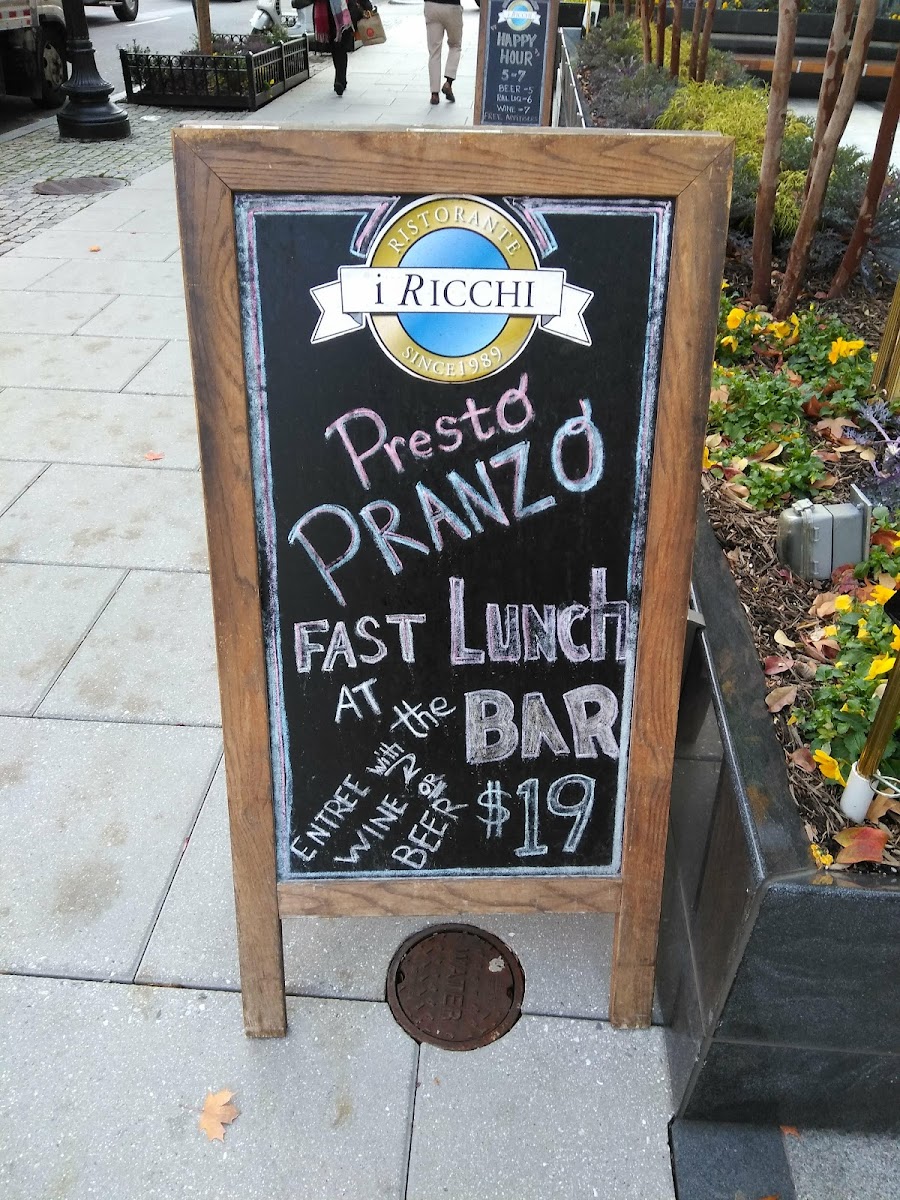 HAPPY
HOUR
5-7
BEER-5
WINE-7
FREE
RISTORANTE
i RICCHI
SINCE 1989
Presto
PRANZO
FAST LUNCH
AT the BAR
ENTREE with
WINE OR
BEER
$19
WATER